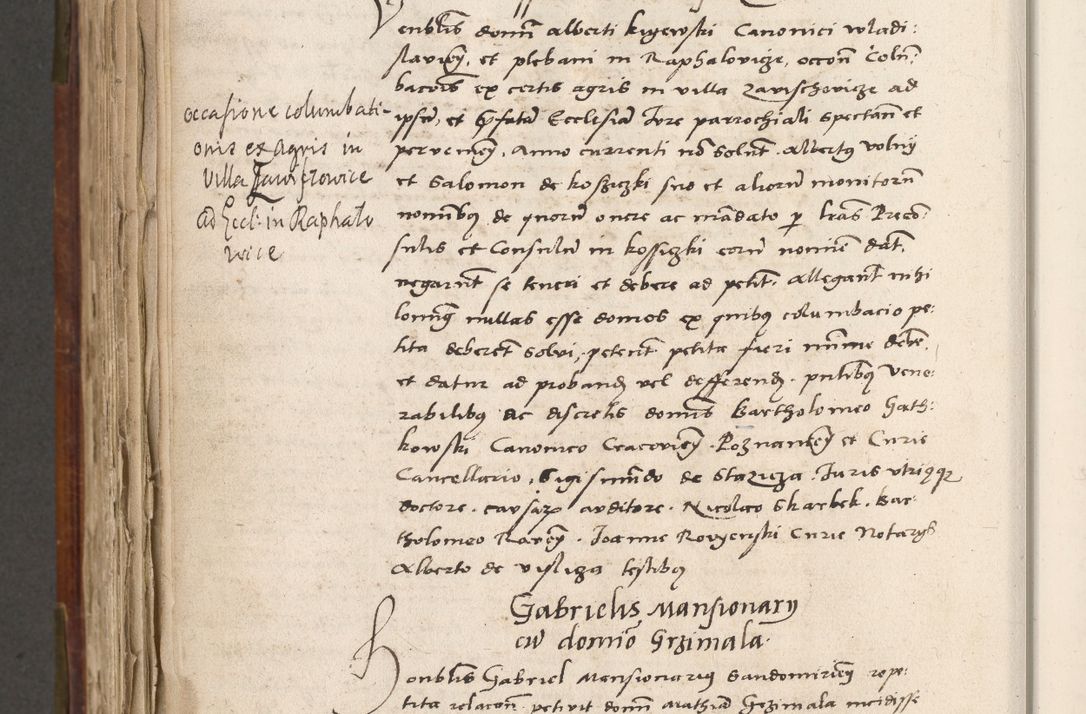 Venblis domni alberti kygewski Canonici wladi:
slavien, et plebani in Raphalovicze, occon Coln:
bacois ex certis agris in villa zavischovicze ad
ipsu, et pfata Ecclesia Jure parrochiali spectan et
pervenien, Anno currenti no solut. Albertg volny
et Salomon de kosziczki suo et alioru monitoru
nomibg de quoru onere ac mandato p lras Preco:
sulis et Consulu in kossiczki coru nomine dat,
negarut se teneri et debere ad petit. Allegant in hi
loing nullas esse domos ex quibg columbacio pe:
tita deberet solvi, petent petita fieri minime debe,
et datur ad proband vel defferend. pntibg vene:
rabilibg ac discretis domis Bartholomeo Gath:
kowski Canonico Cracovien. Poznanien et Curie
Cancellario, Sigismundo de Stazicza Juris utriqq
doctore. causar auditore. Nicolao Skarbek. Bar:
tholomeo Raven. Joanne Rovyenski Curie Notarys
Alberto de visliza testibg
occasione columbati-
onis ex Agris in
Villa Zawiszowice
ad Eccl: in Raphalo
wice
Gabrielis Mansionary
cu domio Grzimala.
Honblis Gabriel Mansionarig Sandomirien repe:
tita relacon petivit domn Mathia Grzimala incidisse